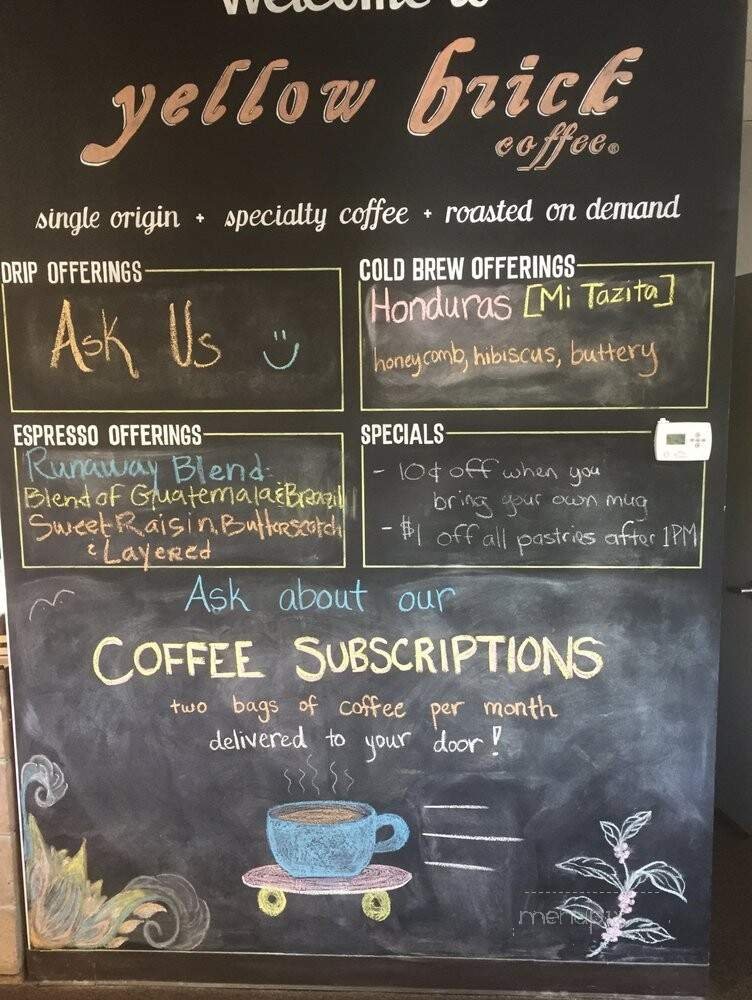 Welcome to
yellow brick
coffee®
single origin + specialty coffee + roasted on demand
DRIP OFFERINGS
Ask Us
COLD BREW OFFERINGS
Honduras [Mi Tazita]
honeycomb, hibiscus, buttery
ESPRESSO OFFERINGS
Runaway Blend:
Blend of Guatemala & Brazil
Sweet Raisin, Butterscotch
& Layered
SPECIALS
- 10¢ off when you
bring your own mug
- $1 off all pastries after 1PM
Ask about our
COFFEE SUBSCRIPTIONS
two bags of coffee per month
delivered to your door!